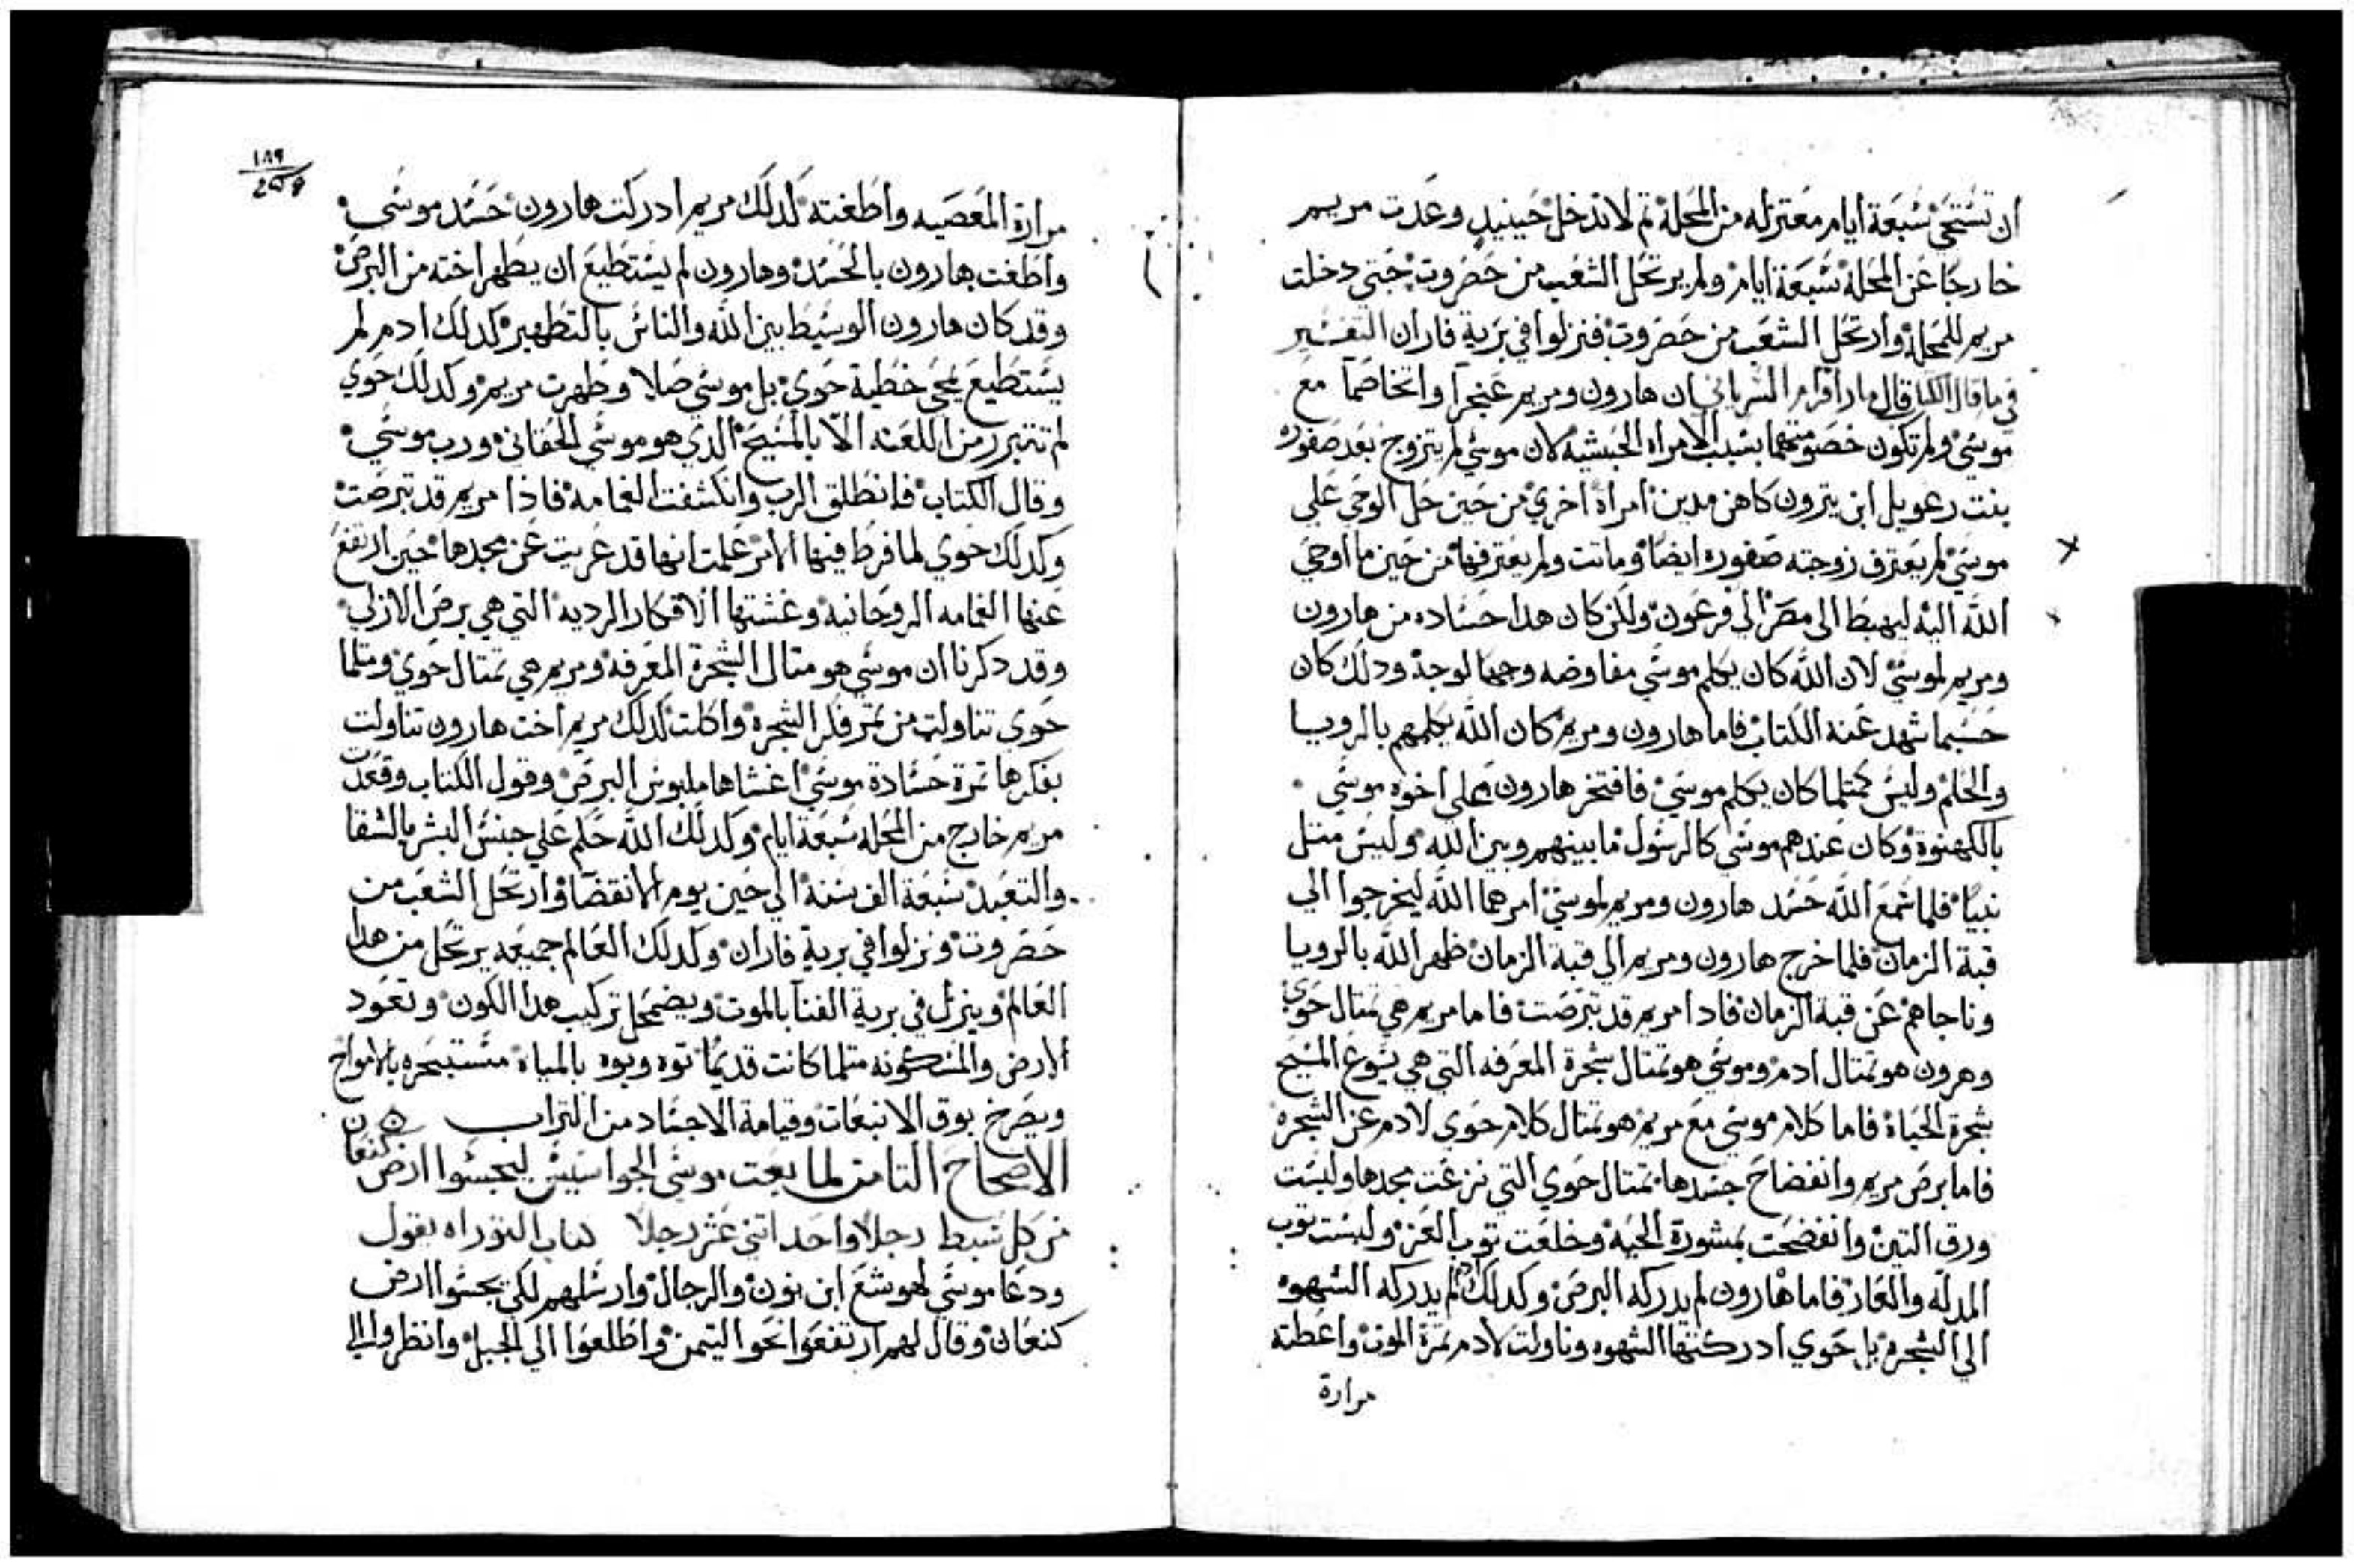 ان تستحي سبعة ايام معتزله من المحلة ثم لاتدخل حينيدٍ وغدت مريم
خارجًا عن المحلة سبعة ايام ولم يرتحل الشعب من حضروت حتي دخلت
مريم للمحلة وارتحل الشعب من حضروت فنزلوا في برية فاران التفسير
قال مار افرام السرياني ان هارون ومريم واتخاصما مع
موسي ولم تكون خصومتهما بسبب الامراه الحبشيه لان موسي لم يتزوج بعد صفوره
بنت رعويل ابن يترون كاهن مدين امراة اخري من حين حل الوحي علي
موسي لم يعترف زوجته صفوره ايضًا وماتت ولم يعترفها من حين ما اوحي
الله اليه ليهبط الي مصر الي فرعون ولكن كان هدا حساده من هارون
ومريم لموسي لان الله كان يكلم موسي مفاوضه وجهًا لوجه ودلك كان
حسبما شهد عنه الكتاب فاما هارون ومريم كان الله يكلمهم بالرويا
والحلم وليس كمتلما كان يكلم موسي فافتخر هارون علي اخوه موسي
بالكهنوة وكان عندهم موسي كالرسول مابينهم وبين الله وليس متل
نبيًا فلما سمع الله حسد هارون ومريم لموسي امرهما الله ليخرجوا الي
قبة الزمان فلما خرج هارون ومريم الي قبة الزمان ظهر الله بالرويا
وناجاهم عن قبة الزمان فادا مريم قد تبرصت فاما مريم هي تمتال حوي
وهرون هو تمتال ادم وموسي هو تمتال شجرة المعرفه التي هي يسوع المسيح
شجرة الحياة فاما كلام موسي مع مريم هو تمتال كلام حوي لادم عن الشجره
فاما برص مريم وانفضاح جسدها تمتال حوي التي نزعت مجدها ولبست
ورق التين وانفضحت بمشورة الحيه وخلعت توب العز ولبست توب
المدلّه والعار فاما هارون لم يدركه البرص وكدلك ادم لم يدركه الشهوه
الي الشجره بل حوي ادركتها الشهوه وناولت لادم تمرة الموت واعطته
مرارة
١٨٩
مرارة المعصيه واطغته كدلك مريم ادركت هارون حسد موسي
واطغت هارون بالحسد وهارون لم يستطيع ان يطهر اخته من البرص
وقد كان هارون الوسيط بين الله والناس بالتطهير كدلك ادم لم
يستطيع يمحي خطية حوي بل موسي صلا وطهرت مريم وكدلك حوي
لم تتبرر من اللعنه الّا بالمسيح الدي هو موسي الحقاني ورب موسي
وقال الكتاب فانطلق الرب وانكشفت الغمامه فاذا مريم قد تبرصت
وكدلك حوي لما فرط فيها الامر علمت انها قد عريت عن مجدها حين ارتفع
عنها الغمامه الروحانيه وغشتها الافكار الرديه التي هي برص الازلي
وقد دكرنا ان موسي هو متال الشجرة المعرفه ومريم هي تمتال حوي ومتلما
حوي تناولت من تمر الشجره واكلت كدلك مريم اخت هارون تناولت
بفكرها تمرة حسادة موسي اغشاها ملبوس البرص وقول الكتاب وقعدت
مريم خارج من المحله سبعة ايام وكدلك الله حكم علي جنس البشر بالشقا
والتعبد سبعة الف سنة الي حين يوم الانقضا وارتحل الشعب من
حضروت ونزلوا في برية فاران وكدلك العالم جميعه يرتحل من هدا
العالم وينزل في برية الفنا بالموت ويضمحل تركيب هدا الكون وتعود
الارض والمسكونه متلما كانت قديمًا توه وبوه بالمياه مستبحره بالامواج
ويصرخ بوق الانبعات وقيامة الاجساد من التراب
الاصحاح التامن لما بعت موسي الجواسيس ليجسوا ارض كنعان
من كل سبط رجلًا واحد اتني عشر رجلًا كتاب التوراه يقول
ودعا موسي لهوشع ابن نون والرجال وارسلهم لكي يجسوا ارض
كنعان وقال لهم ارتفعوا نحو التيمن واطلعوا الي الجبل وانظروا الي